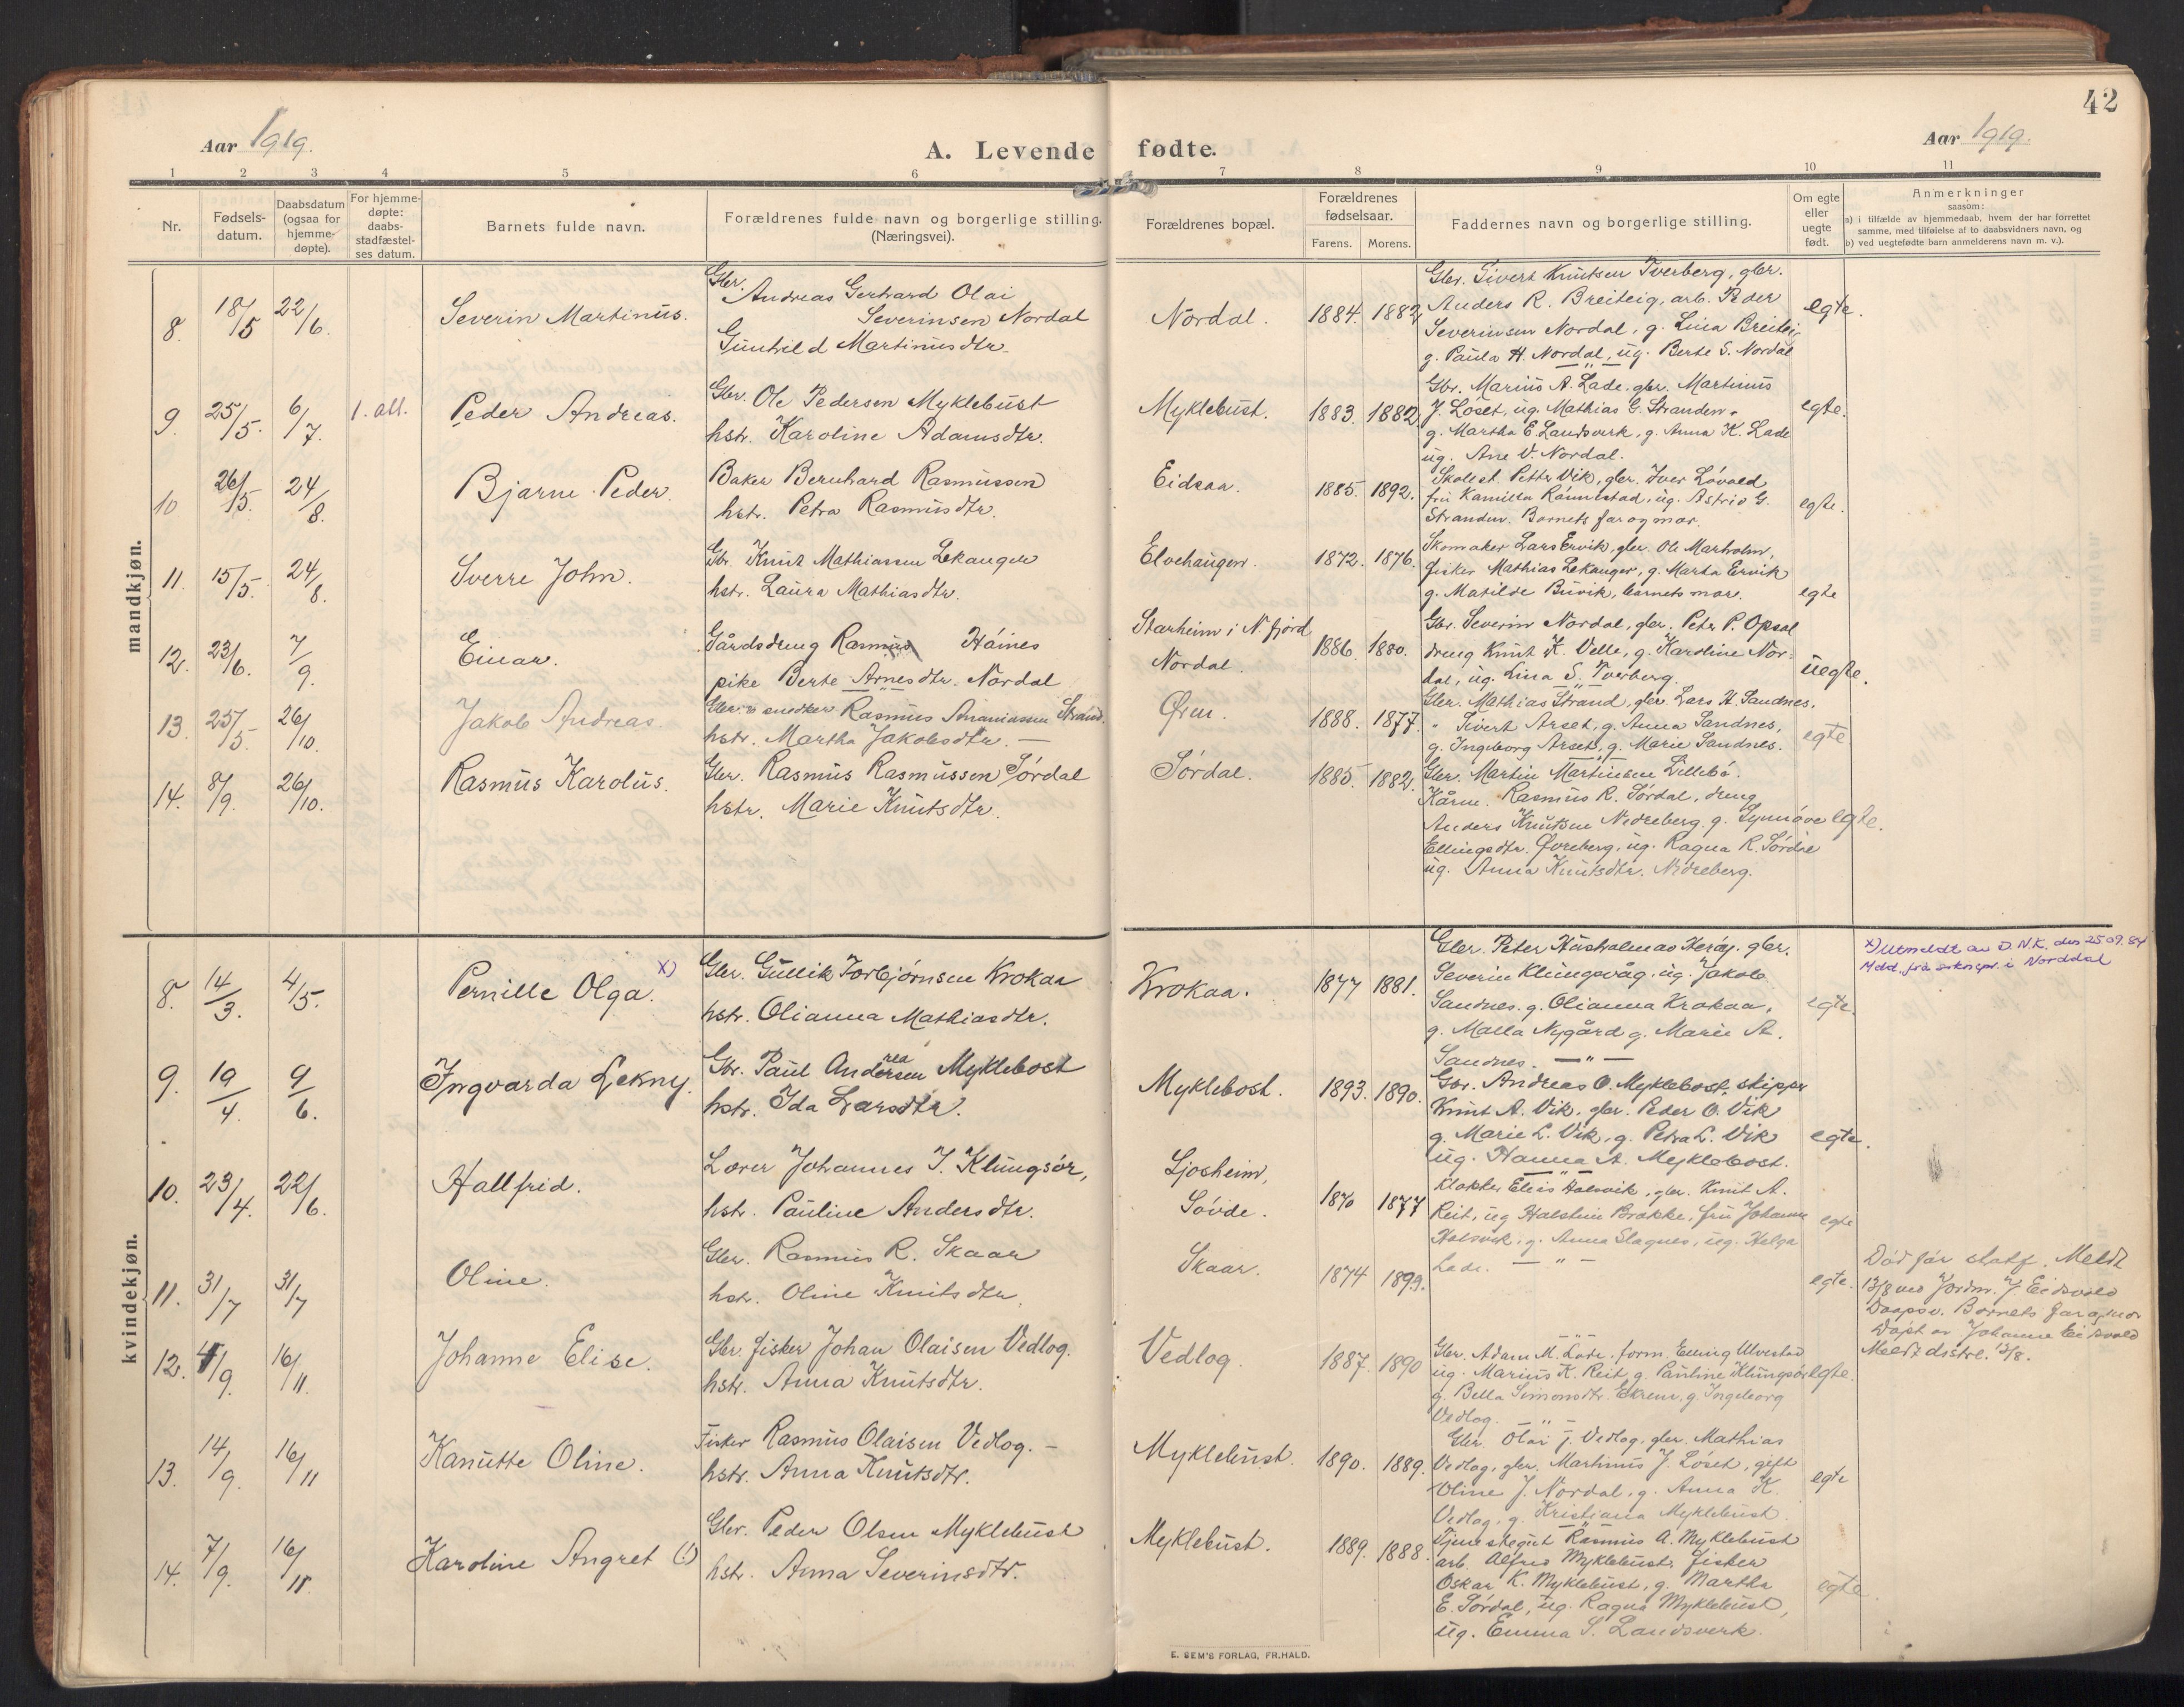 42
Aar 1919.
A. Levende fødte.
Aar 1919.
1 2 3 4 5 6 7 8 9 10 11
Nr.
Fødsels-
datum.
Daabsdatum
(ogsaa for
hjemme-
døpte).
For hjemme-
døpte:
daabs-
stadfæstel-
ses datum.
Barnets fulde navn.
Forældrenes fulde navn og borgerlige stilling.
(Næringsvei).
Forældrenes bopæl.
Forældrenes
fødselsaar.
Farens. Morens.
Faddernes navn og borgerlige stilling.
Om egte
eller
uegte
født.
Anmerkninger
saasom:
a) i tilfælde av hjemmedaab, hvem der har forrettet
samme, med tilføielse af to daabsvidners navn, og
b) ved uegtefødte barn anmelderens navn m. v.).
mandkjøn.
8. 18/5 22/6. Severin Martinus.
Gbr. Andreas Gerhard Olai
Severinsen Nordal
Gunhild Martinusdtr.
Nordal. 1884. 1882.
Gbr. Sivert Knutsen Tverberg, gbr.
Anders R. Breiteig, arb. Peder
Severinsen Nordal, g. Lina Breiteig
g. Paula H. Nordal, ug. Berte S. Nordal
egte.
9. 25/5. 6/7. 1. all. Peder Andreas.
Gbr. Ole Pedersen Myklebust
hstr. Karoline Adamsdtr.
Myklebust. 1883. 1882.
Gbr. Marius A. Lade, gbr. Martinus
J. Løset, ug. Mathias G. Stranden.
g. Martha E. Landsverk, g. Anna K. Lade
ug. Ane V. Nordal.
egte.
10 26/5. 24/8. Bjarne Peder.
Baker Bernhard Rasmussen
hstr. Petra Rasmusdtr.
Eidsaa. 1885. 1892.
Skolest. Petter Vik, gbr. Iver Løvold
fru Kamilla Rønnestad, ug. Astrid G.
Stranden. Barnets far og mor.
egte.
11. 15/5. 24/8. Sverre John.
Gbr. Knut Mathiassen Lekanger
hstr. Laura Mathiasdtr.
Elvehaugen. 1872. 1876.
Skomaker Lars Ervik, gbr. Ole Marholm,
fisker Mathias Lekanger, g. Marta Ervik
g. Matilde Buvik, barnets mor.
egte
12. 23/6. 7/9. Einar.
Gårdsdreng Rasmus Håines
pike Berte Arnesdtr. Nordal
Starheim i N. fjord
Nordal. 1886. 1880.
Gbr. Severin Nordal, gbr. Petr P. Opsal
dreng Knut K. Velle, g. Karoline Nor-
dal, ug. Lina S. Tverberg.
uegte.
13. 25/5. 26/10. Jakob Andreas
Gbr. & snedker Rasmus Ananiassen Strand.
hstr. Martha Jakobsdtr. —
Øren. 1888. 1877.
Gbr. Mathias Strand, gbr. Lars H. Sandnes.
" Sivert Arset, g. Anna Sandnes,
g. Ingeborg Arset, g. Marie Sandnes.
egte
14. 8/9. 26/10. Rasmus Karolus.
Gbr. Rasmus Rasmussen Sørdal
hstr. Marie Knutsdtr.
Sørdal. 1885. 1882.
Gbr. Martin Martinsen Lillebø.
Kårm. Rasmus R. Sørdal, dreng
Anders Knutsen Nedreberg. g. Synnøve
Ellingsdtr. Øvreberg, ug. Ragna R. Sørdal
ug. Anna Knutsdtr. Nedreberg.
egte.
kvindekjøn.
8. 14/3. 4/5. Pernille Olga. x)
Gbr. Gullik Torbjørnsen Krokaa
hstr. Olianna Mathiasdtr.
Krokaa. 1877 1881.
Gbr. Peter Husholmao Herøy. gbr.
Severin Klungsvåg. ug. Jakob
Sandnes. g. Olianna Krokaa,
g. Malla Nygård g. Marie A.
Sandnes. — " —
egte.
x) Utmeldt av D.N.K. den 25.09.84
Medd. fra soknepr. i Norddal
9. 19/4. 9/6. Ingvarda Lekny.
Gbr. Paul Andersen Myklebost
rea
hstr. Ida Larsdtr.
Myklebost. 1893. 1890.
Gbr. Andreas O. Myklebost, skipper
Knut A. Vik, gbr. Peder O. Vik
g. Marie L. Vik, g. Petra L. Vik
ug. Hanna A. Myklebost.
egte.
10. 23/4. 22/6. Hallfrid.
Lærer Johannes J. Klungsør,
hstr. Pauline Andersdtr.
Ljosheim,
Søvde. 1870 1877
Klokker Elias Halsvik, gbr. Knut A.
Reit, ug Halstein Brekke, fru Johanne
Halsvik, g. Anna Slagnes, ug. Helga
Lade. — " —
egte
11. 31/7 31/7 Oline.
Gbr. Rasmus R. Skaar
hstr. Oline Knutsdtr.
Skaar. 1874 1899.
egte.
Død før statf. Meldt
13/8 ved Jordm. J. Eidsvold
Daapsv. Barnets far og mor
Døpt av Johanne Eidsvold
Meldt distrl. 13/8.
12. 4/9. 16/11. Johanne Elise.
Gbr. fisker Johan Olaisen Vedlog.
hstr. Anna Knutsdtr.
Vedlog. 1887. 1890
Gbr. Adam M. Lade, form. Elling Ulvestad
ug. Marius K. Reit, g. Pauline Klungsør
g. Bella Simonsdtr. Ekrem, g. Ingeborg
Vedlog. — " —
egte.
13. 14/9. 16/11 Kanutte Oline.
Fisker Rasmus Olaisen Vedlog. —
hstr. Anna Knutsdtr.
Myklebust. 1890. 1889.
Gbr. Olai J. Vedlog, gbr. Mathias
Vedlog, gbr. Martinus J. Løset, gift
Oline J. Nordal, g. Anna K.
Vedlog, g. Kristiana Myklebust.
egte
14. 7/9. 16/11. Karoline Angret (!)
Gbr. Peder Olsen Myklebust
hstr. Anna Severinsdtr.
Myklebust. 1889. 1888.
Tjenestegut Rasmus A. Myklebust
arb. Alfred Myklebust, fisker
Oskar K. Myklebust, g. Martha
E. Sørdal, ug. Ragna Myklebust,
ug. Emma S. Landsverk.
egte
E. SEM'S FORLAG, FR.HALD.